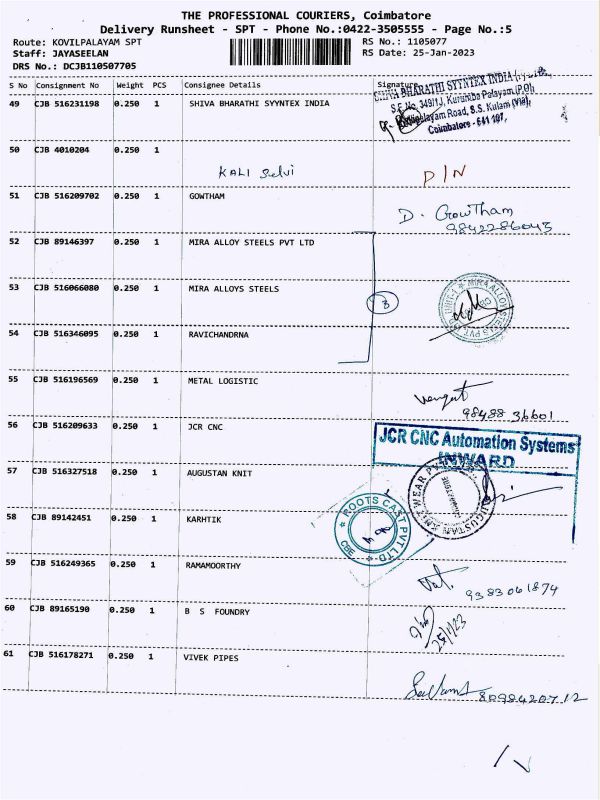 THE PROFESSIONAL COURIERS, Coimbatore
Delivery Runsheet - SPT - Phone No.:0422-3505555 - Page No.:5
Route: KOVILPALAYAM SPT
RS No.: 1105077
Staff: JAYASEELAN
RS Date: 25-Jan-2023
DRS No.: DCJB110507705
S No Consignment No Weight PCS Consignee Details Signature
49 CJB 516231198 0.250 1 SHIVA BHARATHI SYYNTEX INDIA
SHIVA BHARATHI SYYNTEX INDIA
S.F.No. 349/1J, Kurumba Palayam (P.O),
Road, S.S. Kulam (Via),
Coimbatore - 641 107.
50 CJB 4010204 0.250 1
KALI Selvi P/N
51 CJB 516209702 0.250 1 GOWTHAM
D. Gowtham
9842286043
52 CJB 89146397 0.250 1 MIRA ALLOY STEELS PVT LTD
53 CJB 516066080 0.250 1 MIRA ALLOYS STEELS
3
MIRA ALLOY STEELS PVT LTD UNIT-1
CBE
54 CJB 516346095 0.250 1 RAVICHANDRNA
55 CJB 516196569 0.250 1 METAL LOGISTIC
98488 36601
56 CJB 516209633 0.250 1 JCR CNC
JCR CNC Automation Systems
INWARD
57 CJB 516327518 0.250 1 AUGUSTAN KNIT
AUGUSTAN KNIT WEAR
58 CJB 89142451 0.250 1 KARHTIK
ROOTS CAST PVT LTD
CBE
59 CJB 516249365 0.250 1 RAMAMOORTHY
9383061874
60 CJB 89165190 0.250 1 B S FOUNDRY
25/1/23
61 CJB 516178271 0.250 1 VIVEK PIPES
8098420712